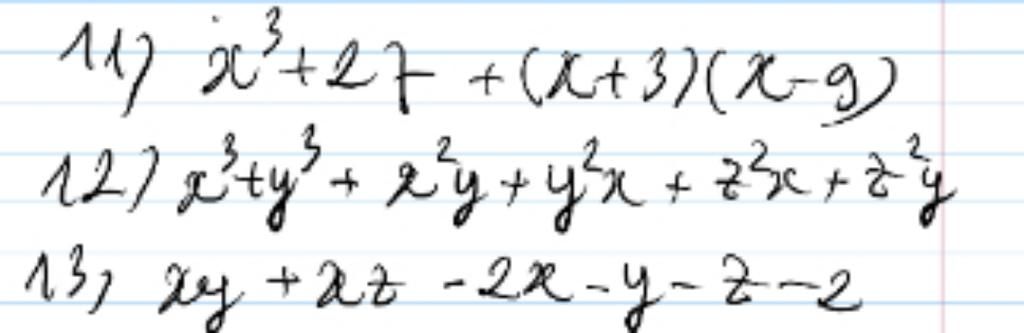 11) x³+27 +(x+3)(x-9)
12) x³+y³ + x²y + y²x + z²x + z²y
13) xy + xz - 2x - y - z - 2